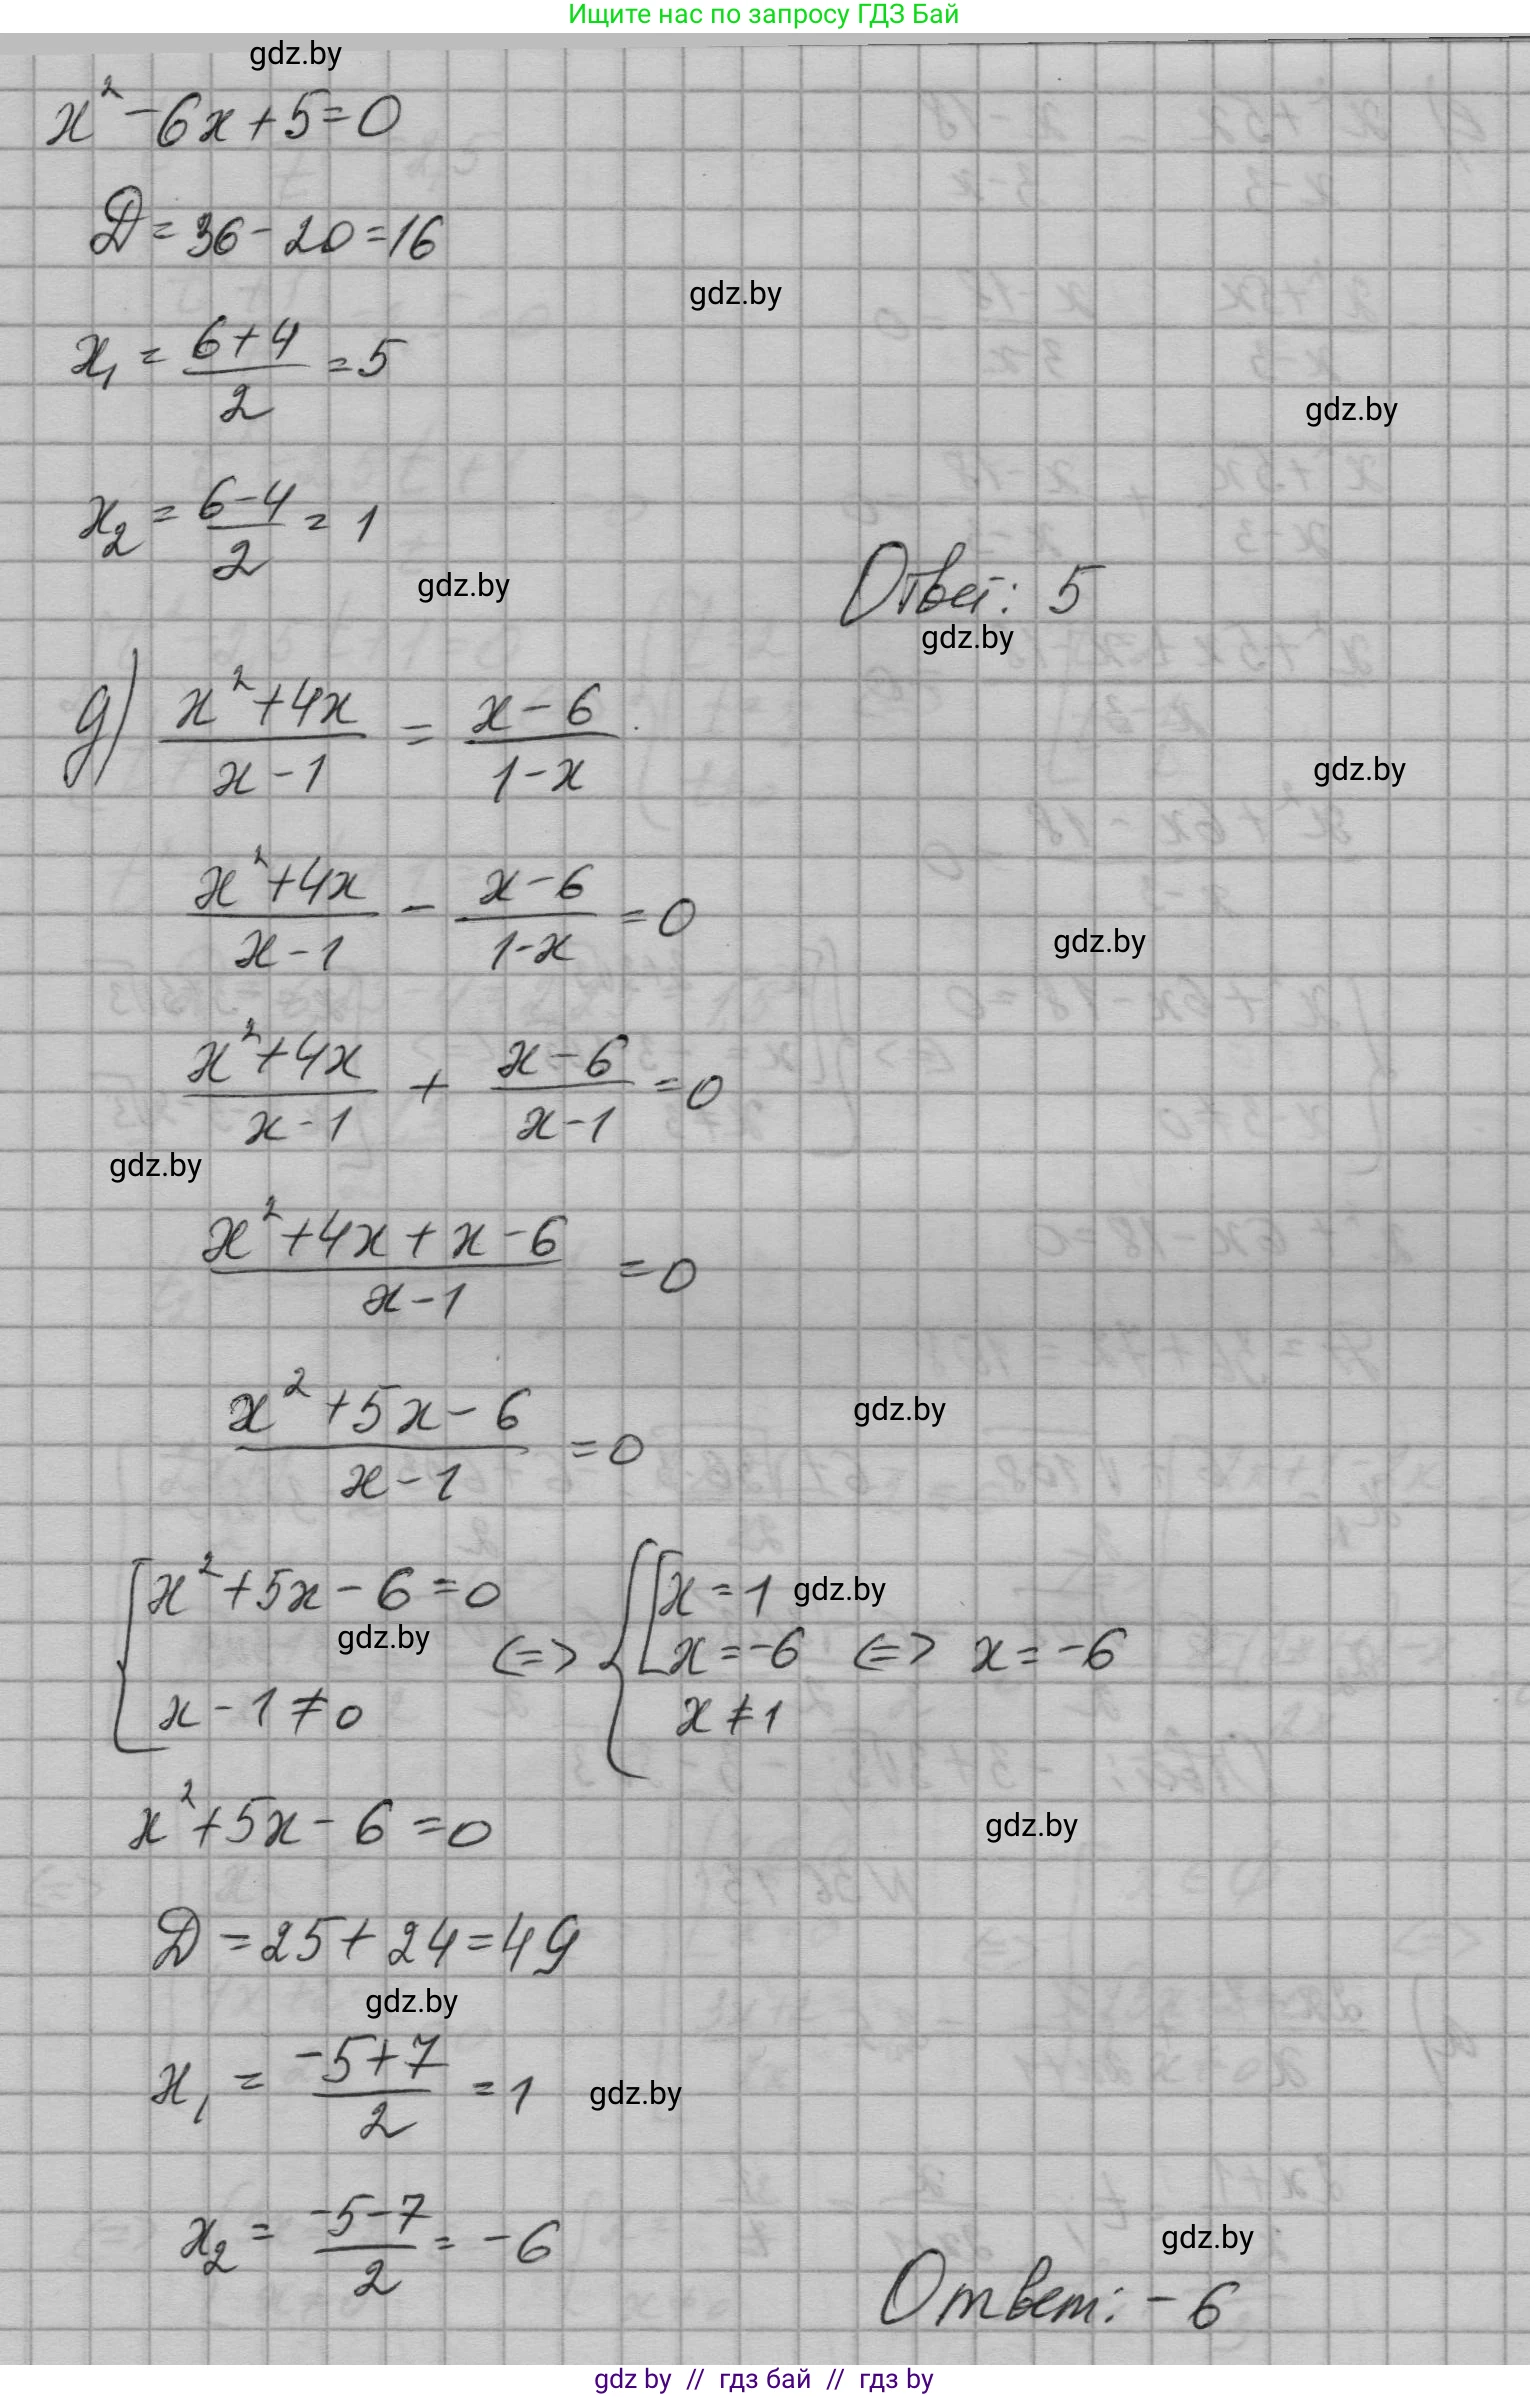 Ищите нас по запросу ГДЗ Бай
gdz.by
x² - 6x + 5 = 0
Д = 36 - 20 = 16
gdz.by
x₁ = (6+4)/2 = 5
gdz.by
x₂ = (6-4)/2 = 1
gdz.by
Ответ: 5
gdz.by
д) (x²+4x)/(x-1) = (x-6)/(1-x)
gdz.by
(x²+4x)/(x-1) - (x-6)/(1-x) = 0
gdz.by
(x²+4x)/(x-1) + (x-6)/(x-1) = 0
gdz.by
(x²+4x+x-6)/(x-1) = 0
(x²+5x-6)/(x-1) = 0
gdz.by
{ x²+5x-6=0 <=> { [ x=1 gdz.by
gdz.by
x=-6 <=> x=-6
x-1≠0 x≠1
x²+5x-6=0
gdz.by
Д = 25+24=49
gdz.by
x₁ = (-5+7)/2 = 1
gdz.by
x₂ = (-5-7)/2 = -6
gdz.by
Ответ: -6
gdz by // гдз бай // гдз by